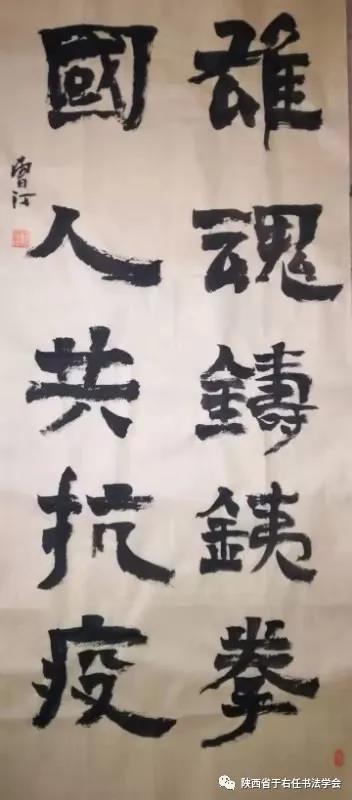 雄魂鑄銕拳
國人共抗疫
陕西省于右任书法学会